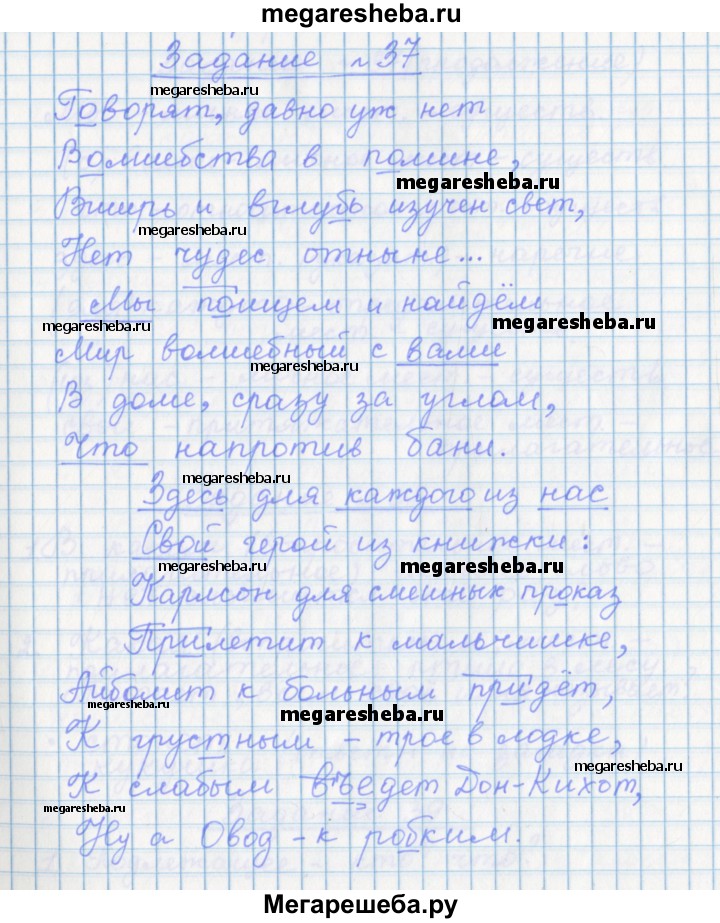 megaresheba.ru
Задание №37
megaresheba.ru
Говорят, давно уж нет
Волшебства в помине,
megaresheba.ru
Вширь и вглубь изучен свет,
megaresheba.ru
Нет чудес отныне...
Мы поищем и найдём
megaresheba.ru
megaresheba.ru
Мир волшебный с вами
megaresheba.ru
В доме, сразу за углом,
Что напротив бани.
megaresheba.ru
Здесь для каждого из нас
Свой герой из книжки:
megaresheba.ru
megaresheba.ru
Карлсон для смешных проказ
Прилетит к мальчишке,
Айболит к больным придёт,
megaresheba.ru
megaresheba.ru
К грустным – трое в лодке,
megaresheba.ru
К слабым въедет Дон-Кихот,
megaresheba.ru
Ну а Овод – к робким.
Мегарешеба.ру